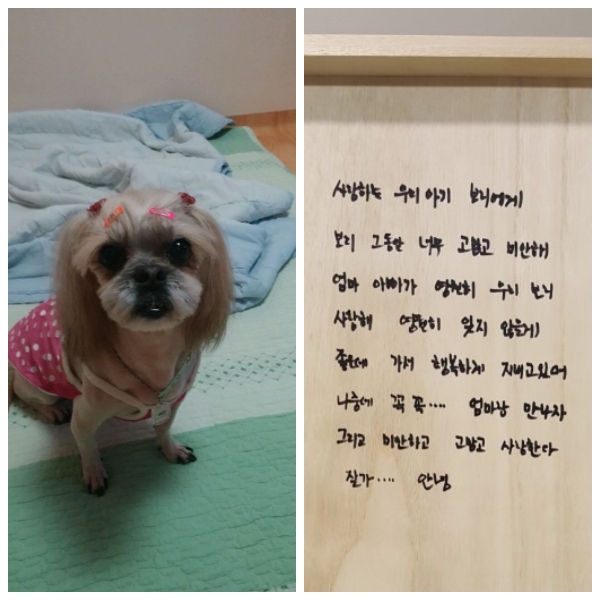 사랑하는 우리 아기 보리에게
보리 그동안 너무 고맙고 미안해
엄마 아빠가 영원히 우리 보리
사랑해 영원히 잊지 않을게
좋은데 가서 행복하게 지내고있어
나중에 꼭 꼭.... 엄마랑 만나자
그리고 미안하고 고맙고 사랑한다
잘가.... 안녕